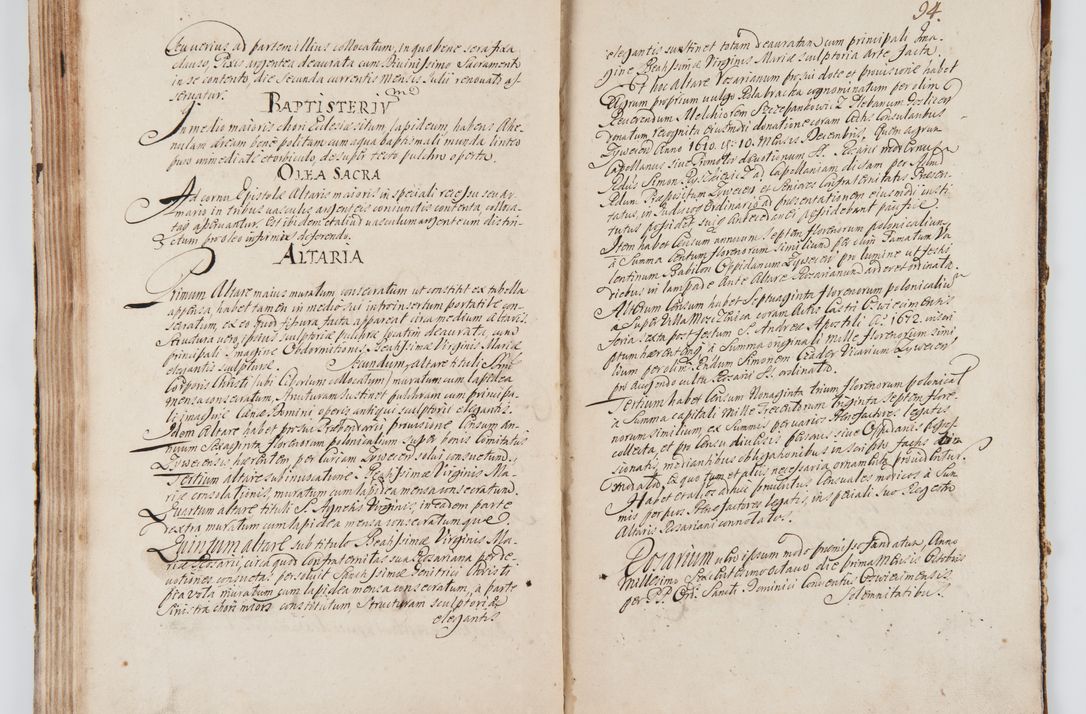 seu verius ad partem illius collocatum, in quo bene sera fixa
clauso, Pixis argentea deaurata cum Divinissimo Sacramento
in se contento, die secunda currentis mensis Julii renovato as
servatur.
BAPTISTERIUM
In medio maioris chori Ecclesiae situm, lapideum, habens Ahe-
neam bene politam cum aqua baptismali munda linteo
puro immediate et orbiculo, desuper tecto pulchro operta.
OLEA SACRA
Ad cornu Epistolae Altaris maioris in speciali recessu seu ar-
mario in tribus vasculis argenteis coniunctis contenta, colloca-
ta asservantur. Est ibidem et aliud vasculum argenteum distin-
ctum pro oleo infirmis deferendo.
ALTARIA
Primum Altare maius muratum consecratum ut constitit ex tabella
appensa, habet tamen in medio sui introinsertum portatile con-
secratum, ex eo quod fissura facta appareat circa medium Altaris.
Structura vero, ipsius sculptoriae pulchrae locatim deaurata, cum
principali Imagine Obdormitionis Beatissimae Virginis Mariae
elegantis sculpturae. Secundum, altare tituli Smi
Corporis Christi (ubi Ciborium collocatum) muratum cum lapidea
mensa consecratum, structuram sustinet pulchram cum principa-
li imagine Caenae Domini operis antiqui sculptorii elegantis.
Idem Altare habet prosui Praebendarii provisione Censum an-
nuum Sexaginta florenorum polonicalium super bonis Comitatus
Zywecensis haerentem, per Curiam Zywecen solui consuetum.
Tertium altare sub invocatione Beatissimae Virginis Ma-
riae consolationis, muratum cum lapidea mensa consecratum.
Quartum altare tituli S. Agnetis Virginis, in eadem parte
dextra muratum cum lapidea mensa consecratumque.
Quintum altare sub titulo Beatissimae Virginis Ma-
riae Rosarii, circa quod Confraternitas sua Rosariana pro de-
votiones consuetas persoluit Sanctissimae Genitrici Christi
pia vota muratum cum lapidea mensa consecratum, a parte
sinistra chori minoris constitutum structuram sculptoriae
elegantis
94.
elegantis sustinet totam deauratam cum principali Ima-
gine Beatissimae Virginis Mariae sculptoria arte facta.
Et hoc altare Rosarianum pro sui dote et provisione habet
Agrum proprium vulgo Pala bracka cognominatum per olim
Reverendum Melchiorem Szczepankowicz Plebanum
donatum recognita eiusmodi donatione coram Actis Consularibus
Zywecen Anno 1610. d: 10. Mensis Decembris. Quem agrum
Capellanus sive Promotor devotionum SS. Rosarii modernus
Fidus Simon ad Capellaniam dictam per Admodum
Rdum Praepositum Zywecen et Seniores Confraternitatis Praesen-
tatus, in Iudicio Ordinario ad praesentationem eiusmodi insti-
tutus possidet sui Antecessores possidebant pacifice.
Item habet Censum annuum Septem florenorum polonicalium
a Summa Centum florenorum similium per olim Famatum Va-
lentinum Babilon Oppidanum Zywecen pro lumine ut festis
diebus in lampade Ante Altare Rosarianum arderet ordinata.
Alterum Censum habet Septuaginta florenorum polonicalium
a super Villa coram Actis Castri Oswiecimensis
feria sexta post festum S. Andreae Apostoli Ao 1672. inscri
ptum haerentem, a Summa originali mille florenorum simi
lium per olim Rndum Simonem Vicarium Zywecen
pro augendo cultu Rosarii SS. ordinata.
Tertium habet Censum Nonaginta trium florenorum polonical
a Summa capitali Mille Trecentorum triginta Septem flore-
norum similium ex Summis per varios Benefactores legatis
collecta, et pro Censu diversis personis sive Oppidanis posses-
sionatis, mediantibus obligationibus in scriptis factis
ex quo tum et aliis necessaria ornamenta providentur.
Habet et alios adhuc proventus Censuales modicos a Sum
mis per pios Benefactores legatis, in speciali suo Regestro
Altaris Rosariani connotatos.
Rosarium vero ipsum modo praemisso fundatum Anno
Millesimo Sexcentesimo octavo die prima Mensis Octobris
per P.P. Ord: Sancti Dominici Conventus Oswiecimensis
Solemnitatibus.